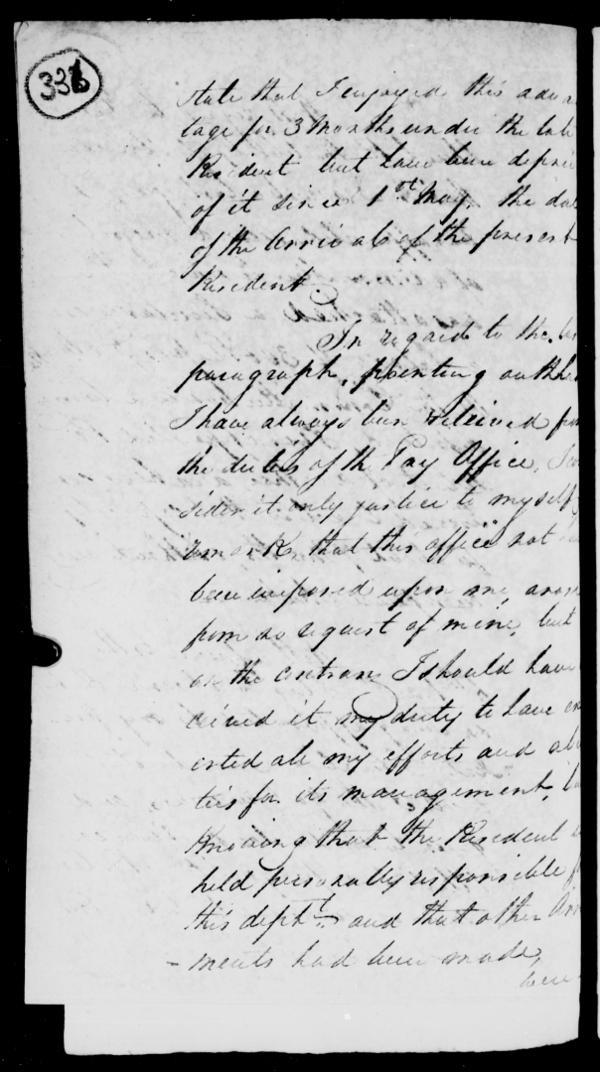 338
state that I enjoyed this advan
tage for 3 Months under the late
Resident but have been depriv
of it since 1st May, the da
of the Arrival of the present
Resident.
In regard to the
paragraph, pointing out tha
I have always been relieved from
the duties of the Pay Office, I con
sider it only justice to myself
remark, that this office not
been imposed upon me, arose
from no request of mine, but
on the contrary I should have
ceived it my duty to have ex
erted all my efforts and abi
ties for its management,
knowing that the Resident
held personally responsible
this dept. and that other Arr
-ments had been made,